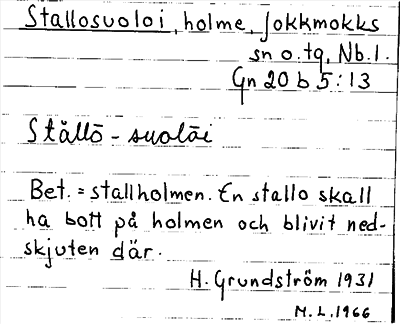 Stallosuoloi, holme, Jokkmokks
sn o. tg, Nb. l.
Gn 20 b 5:13
Stållō - suolāi
Bet. = stallholmen. En stallo skall
ha bott på holmen och blivit ned-
skjuten där.
H. Grundström 1931
M. L. 1966